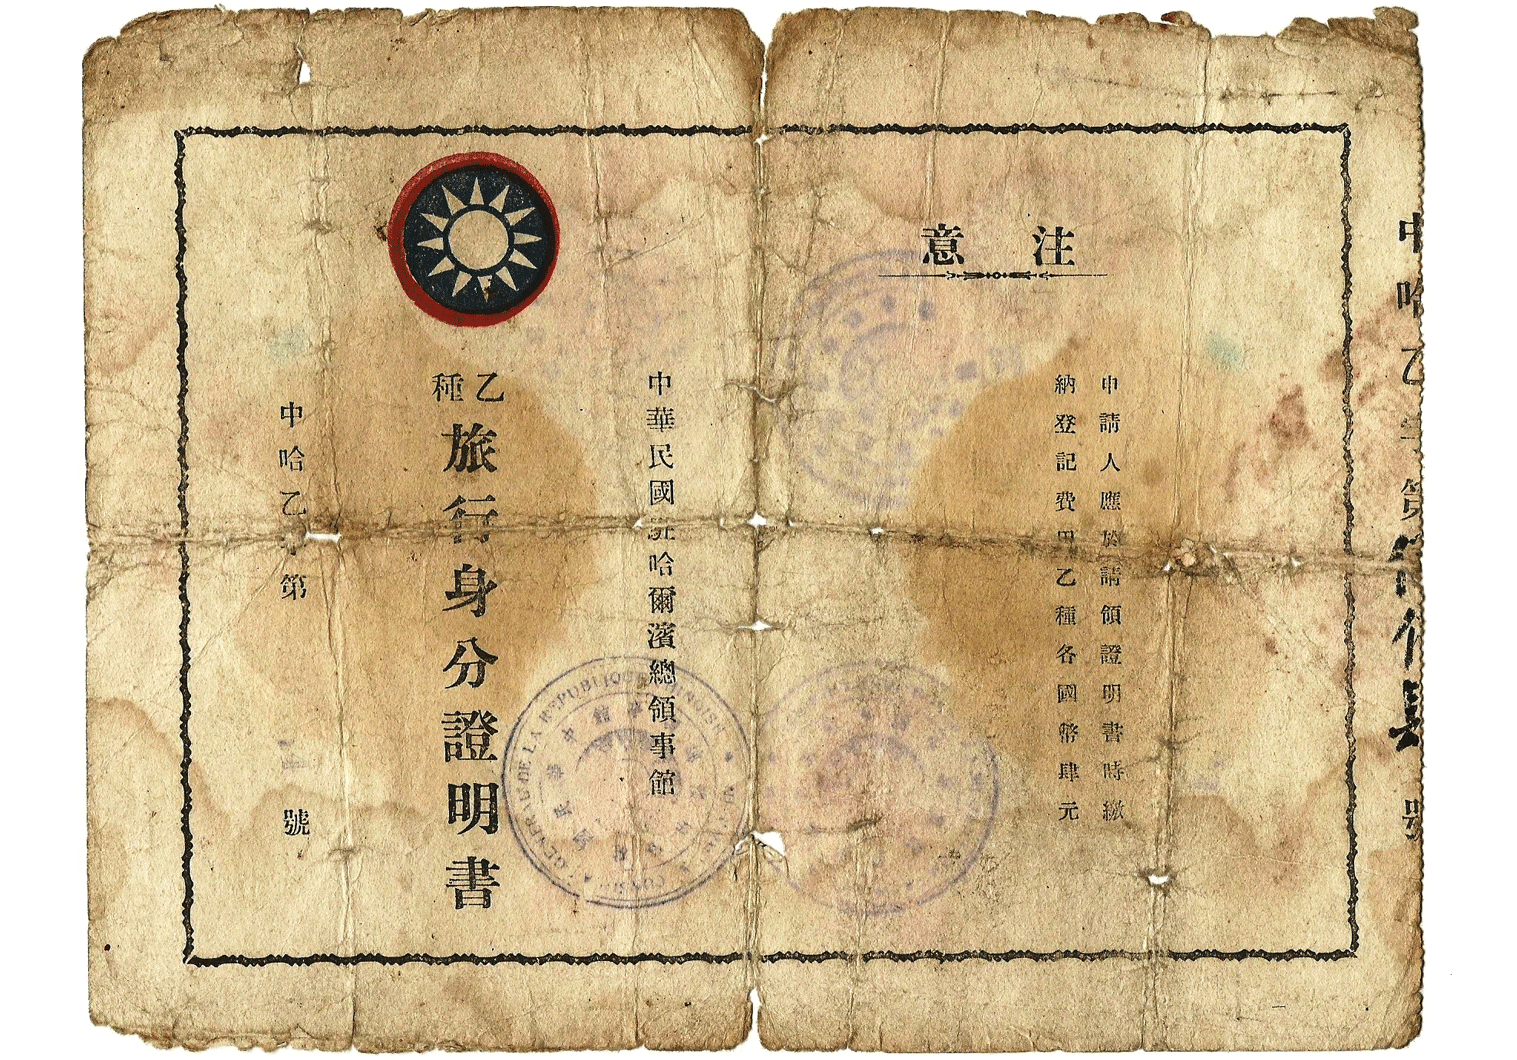 中哈乙字第
號
注意
申請人應於請領證明書時繳
納登記費甲乙種各國幣肆元
中華民國駐哈爾濱總領事館
乙種
旅行身分證明書
中哈乙字第
號
GENERAL DE LA REPUBLIQUE CHINOISE